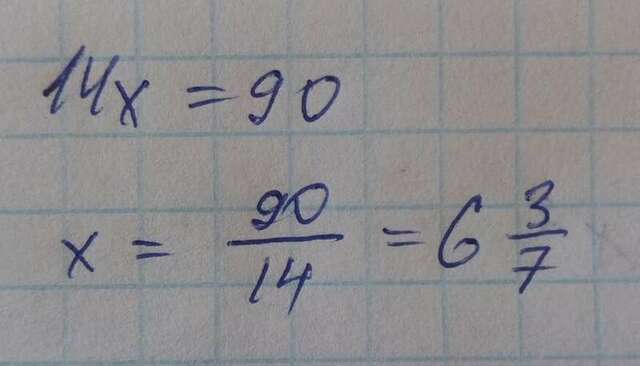 14x = 90
x = 90/14 = 6 3/7